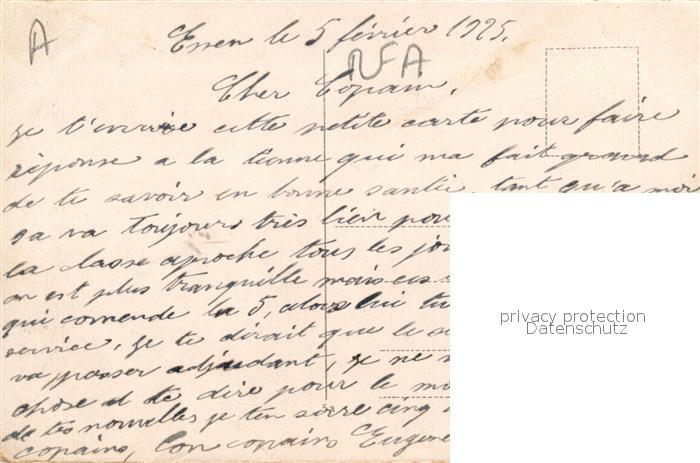 A
Essen le 5 février 1925.
RFA
Cher Copain,
je t'envoie cette petite carte pour faire
réponse a la tienne qui ma fait grand
de te savoir en bonne santée, tant qu'a moi
sa va toujours très bien pour
la classe aproche tous les jou
on est plus tranquille mais
qui comende la 5, alors lui tu
service, je te dirait que le se
va passer adjudant, je ne
chose a te dire pour le mo
de tes nouvelles je ten serre cinq
copains, ton copains Eugene
privacy protection
Datenschutz